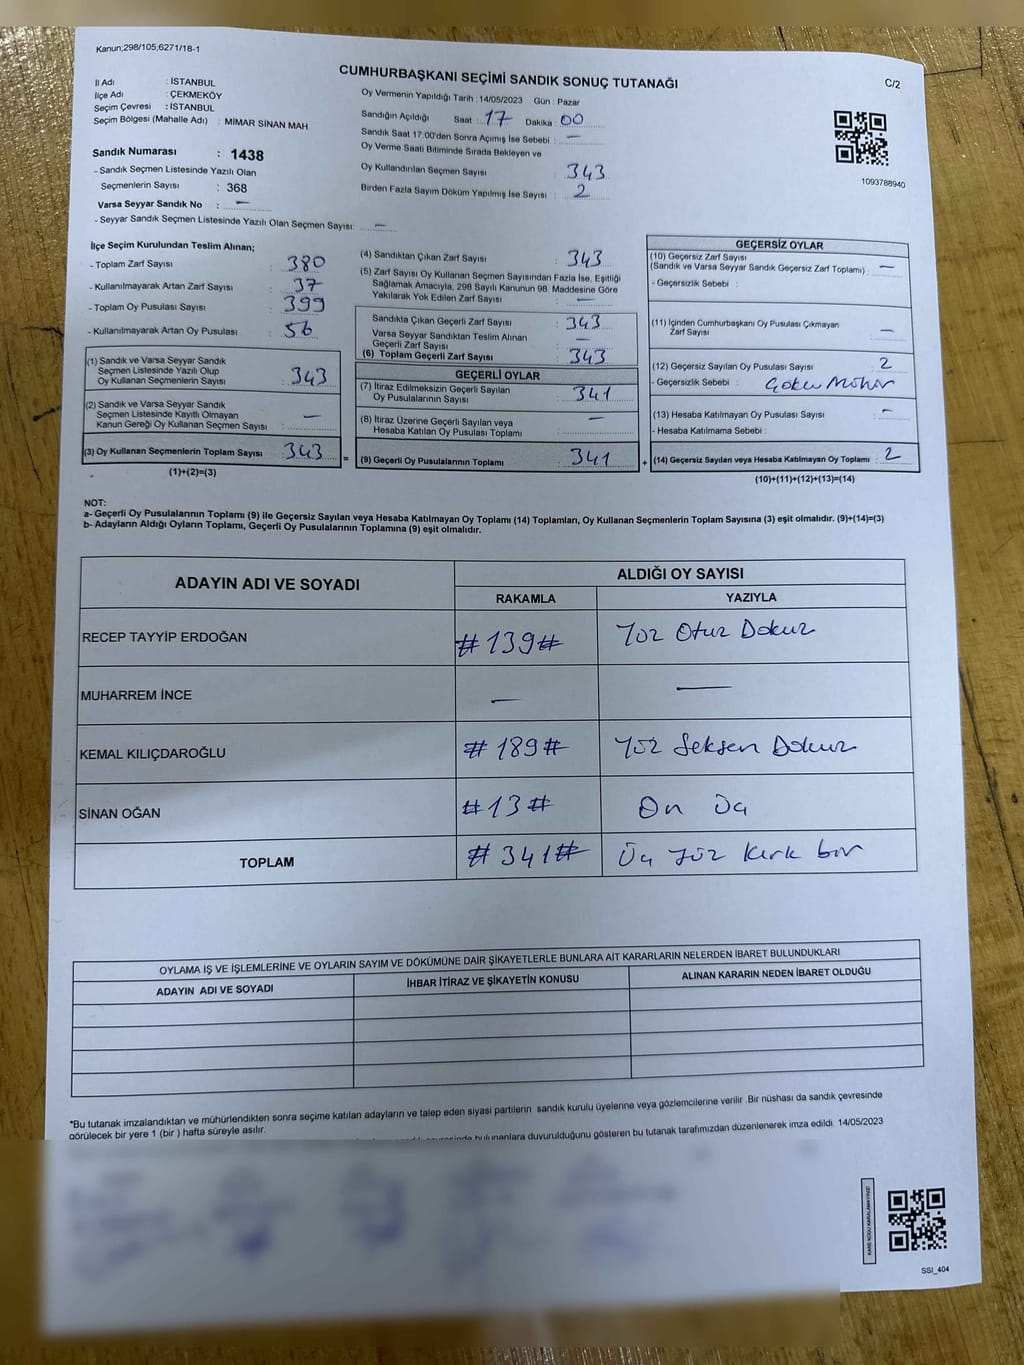 Kanun;298/105,6271/18-1
CUMHURBAŞKANI SEÇİMİ SANDIK SONUÇ TUTANAĞI
C/2
İl Adı : İSTANBUL
İlçe Adı : ÇEKMEKÖY
Seçim Çevresi : İSTANBUL
Seçim Bölgesi (Mahalle Adı) : MİMAR SİNAN MAH.
Oy Vermenin Yapıldığı Tarih : 14/05/2023 Gün : Pazar
Sandığın Açıldığı Saat : 17 Dakika : 00
Sandık Saat 17:00'den Sonra Açımış İse Sebebi : —
Oy Verme Saati Bitiminde Sırada Bekleyen ve
Oy Kullandırılan Seçmen Sayısı : 343
Birden Fazla Sayım Döküm Yapılmış İse Sayısı : 2
1093788940
Sandık Numarası : 1438
- Sandık Seçmen Listesinde Yazılı Olan
Seçmenlerin Sayısı : 368
Varsa Seyyar Sandık No : —
- Seyyar Sandık Seçmen Listesinde Yazılı Olan Seçmen Sayısı: —
İlçe Seçim Kurulundan Teslim Alınan;
- Toplam Zarf Sayısı : 380
- Kullanılmayarak Artan Zarf Sayısı : 37
- Toplam Oy Pusulası Sayısı : 399
- Kullanılmayarak Artan Oy Pusulası : 56
(1) Sandık ve Varsa Seyyar Sandık
Seçmen Listesinde Yazılı Olup
Oy Kullanan Seçmenlerin Sayısı : 343
(2) Sandık ve Varsa Seyyar Sandık
Seçmen Listesinde Kayıtlı Olmayan
Kanun Gereği Oy Kullanan Seçmen Sayısı : —
(3) Oy Kullanan Seçmenlerin Toplam Sayısı : 343 =
(1)+(2)=(3)
(4) Sandıktan Çıkan Zarf Sayısı : 343
(5) Zarf Sayısı Oy Kullanan Seçmen Sayısından Fazla İse, Eşitliği
Sağlamak Amacıyla, 298 Sayılı Kanunun 98. Maddesine Göre
Yakılarak Yok Edilen Zarf Sayısı : —
Sandıkta Çıkan Geçerli Zarf Sayısı : 343
Varsa Seyyar Sandıktan Teslim Alınan
Geçerli Zarf Sayısı : —
(6) Toplam Geçerli Zarf Sayısı : 343
GEÇERLİ OYLAR
(7) İtiraz Edilmeksizin Geçerli Sayılan
Oy Pusulalarının Sayısı : 341
(8) İtiraz Üzerine Geçerli Sayılan veya
Hesaba Katılan Oy Pusulası Toplamı : —
(9) Geçerli Oy Pusulalarının Toplamı : 341 +
GEÇERSİZ OYLAR
(10) Geçersiz Zarf Sayısı
(Sandık ve Varsa Seyyar Sandık Geçersiz Zarf Toplamı) : —
- Geçersizlik Sebebi :
(11) İçinden Cumhurbaşkanı Oy Pusulası Çıkmayan
Zarf Sayısı : —
(12) Geçersiz Sayılan Oy Pusulası Sayısı : 2
- Geçersizlik Sebebi :
(13) Hesaba Katılmayan Oy Pusulası Sayısı : —
- Hesaba Katılmama Sebebi :
(14) Geçersiz Sayılan veya Hesaba Katılmayan Oy Toplamı : 2
(10)+(11)+(12)+(13)=(14)
NOT:
a- Geçerli Oy Pusulalarının Toplamı (9) ile Geçersiz Sayılan veya Hesaba Katılmayan Oy Toplamı (14) Toplamları, Oy Kullanan Seçmenlerin Toplam Sayısına (3) eşit olmalıdır. (9)+(14)=(3)
b- Adayların Aldığı Oyların Toplamı, Geçerli Oy Pusulalarının Toplamına (9) eşit olmalıdır.
ADAYIN ADI VE SOYADI
ALDIĞI OY SAYISI
RAKAMLA YAZIYLA
RECEP TAYYİP ERDOĞAN #139# Yüz Otuz Dokuz
MUHARREM İNCE — —
KEMAL KILIÇDAROĞLU #189# Yüz Seksen Dokuz
SİNAN OĞAN #13# On Üç
TOPLAM #341# Üç yüz kırk bir
OYLAMA İŞ VE İŞLEMLERİNE VE OYLARIN SAYIM VE DÖKÜMÜNE DAİR ŞİKAYETLERLE BUNLARA AİT KARARLARIN NELERDEN İBARET BULUNDUKLARI
ADAYIN ADI VE SOYADI İHBAR İTİRAZ VE ŞİKAYETİN KONUSU ALINAN KARARIN NEDEN İBARET OLDUĞU
*Bu tutanak imzalandıktan ve mühürlendikten sonra seçime katılan adayların ve talep eden siyasi partilerin sandık kurulu üyelerine veya gözlemcilerine verilir .Bir nüshası da sandık çevresinde
görülecek bir yere 1 (bir ) hafta süreyle asılır.
bulunanlara duyurulduğunu gösteren bu tutanak tarafımızdan düzenlenerek imza edildi. 14/05/2023
SSI_404